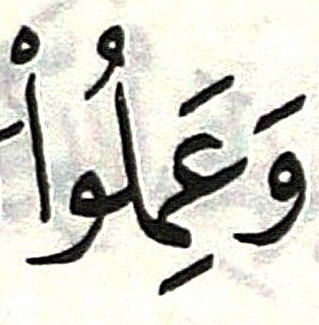 وَعَمِلُواْ